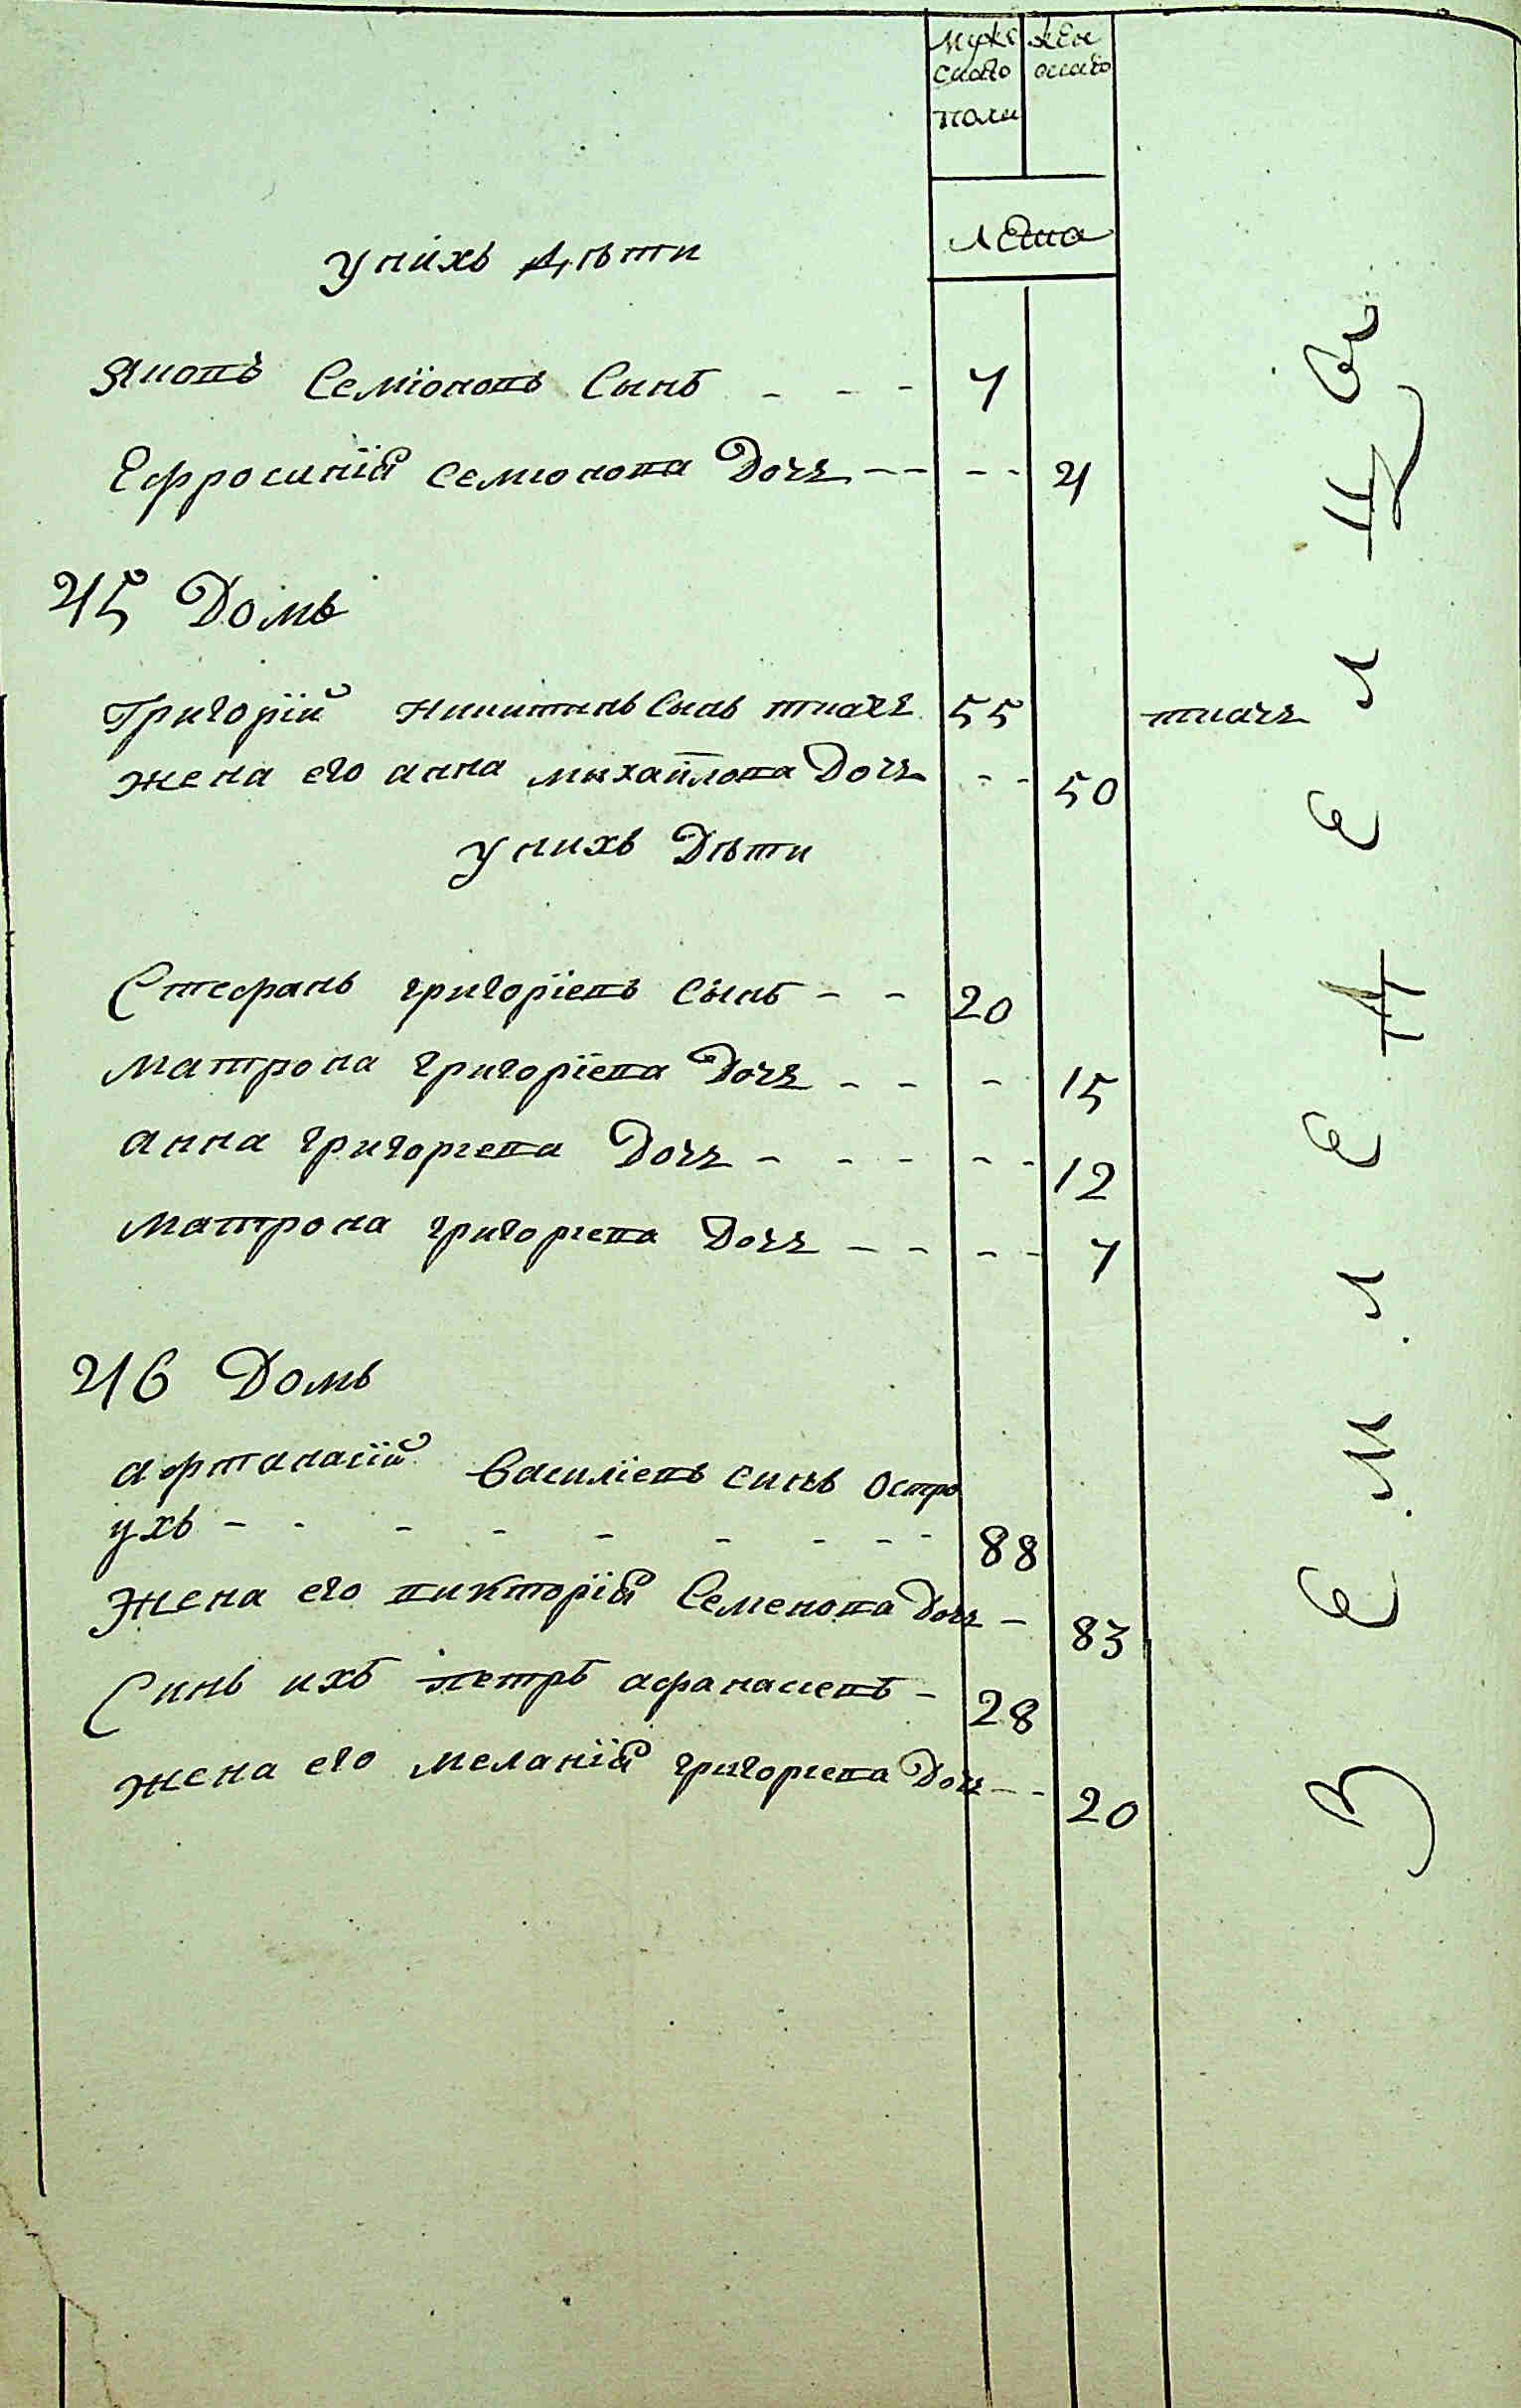 Мужескаго пола
женскаго
Лѣта
У нихъ Дѣти
Яковъ Семіоновъ Сынъ - - - 7
Ефросинія Семионова Дочь - - - - 4
45 Домъ
Григорій Никитинъ Сынъ ткачь 55 ткачь
жена его анна михайлова Дочь - - 50
У нихъ Дѣти
Стефанъ григоріевъ Сынъ - - 20
Матрона григоріева Дочь - - - 15
анна григориева Дочь - - - - - 12
Матрона григориева Дочь - - - - 7
46 Домъ
афтанасій Василіевъ Синъ Остро
ухъ - - - - - - - - - 88
Жена его викторія Семенова Дочь - 83
Синъ ихъ петръ афанасиевъ - 28
жена его меланія григориева Дочь - - 20
З Е М Л Е Д Е Л Ц Ы